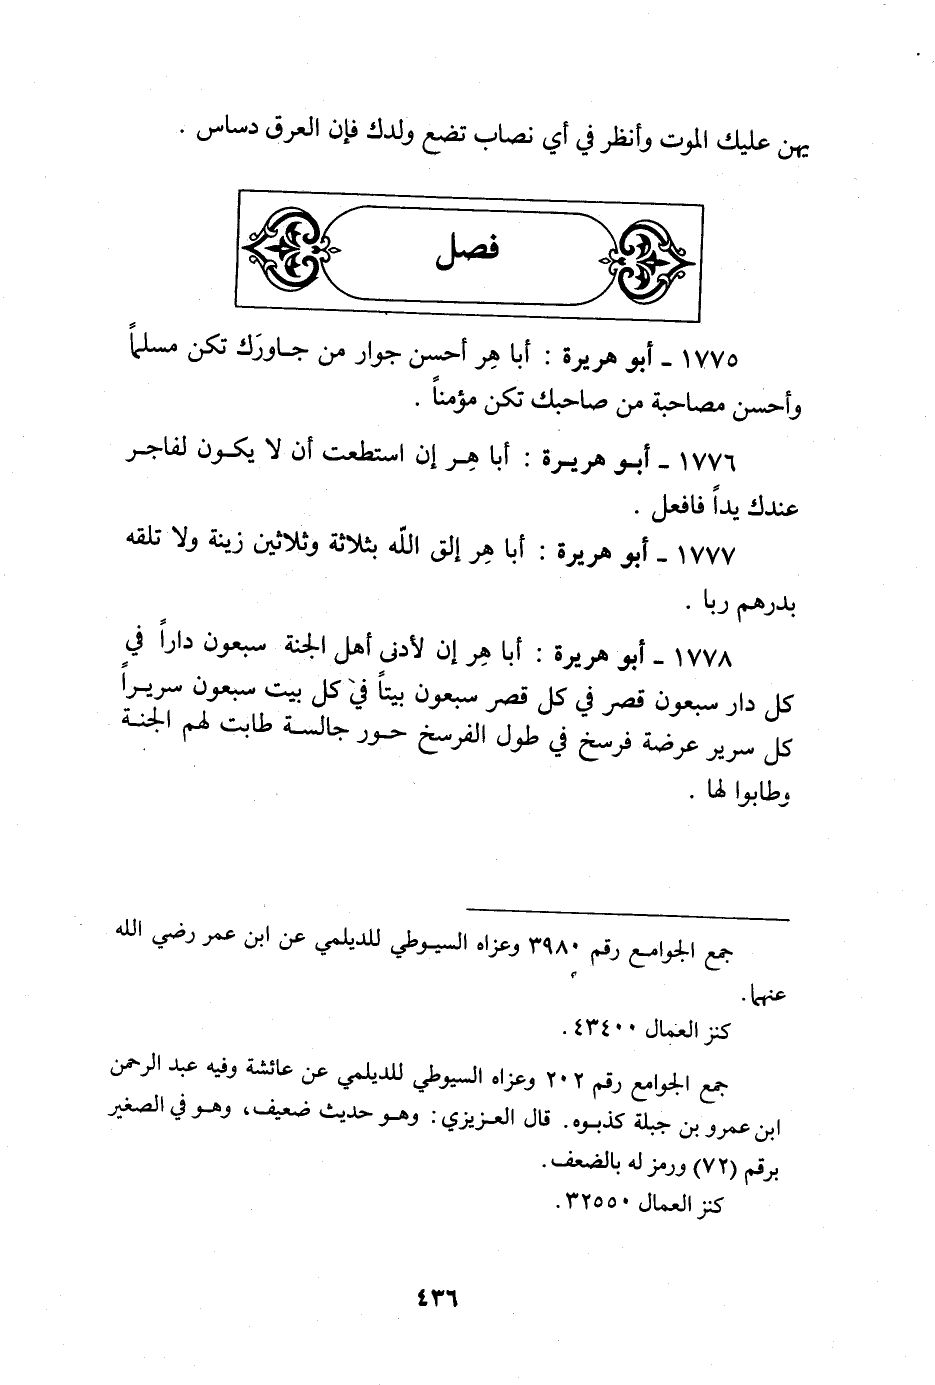 يهن عليك الموت وأنظر في أي نصاب تضع ولدك فإن العرق دساس .
فصل
١٧٧٥ ـ أبو هريرة : أبا هِر أحسن جوار من جـاورَك تكن مسلماً
وأحسن مصاحبة من صاحبك تكن مؤمناً .
١٧٧٦ ـ أبـو هريـرة : أبا هِـر إن استطعت أن لا يكـون لفاجـر
عندك يداً فافعل .
١٧٧٧ ـ أبو هريرة : أبا هِر إلق اللّه بثلاثة وثلاثين زينة ولا تلقه
بدرهم ربا .
١٧٧٨ ـ أبو هريرة : أبا هِر إن لأدنى أهل الجنة سبعون داراً في
كل دار سبعون قصر في كل قصر سبعون بيتاً في كل بيت سبعون سريـراً
كل سرير عرضة فرسخ في طول الفرسخ حـور جالسـة طابت لهم الجنـة
وطابوا لها .
جمع الجوامـع رقم ٣٩٨٠ وعزاه السيـوطي للديلمي عن ابن عمر رضي الله
عنهما.
كنز العمال ٤٣٤٠٠.
جمع الجوامع رقم ٢٠٢ وعزاه السيوطي للديلمي عن عائشة وفيه عبد الرحمن
ابن عمرو بن جبلة كذبـوه. قال العـزيزي: وهـو حديث ضعيف، وهـو في الصغير
برقم (٧٢) ورمز له بالضعف.
كنز العمال ٣٢٥٥٠.
٤٣٦